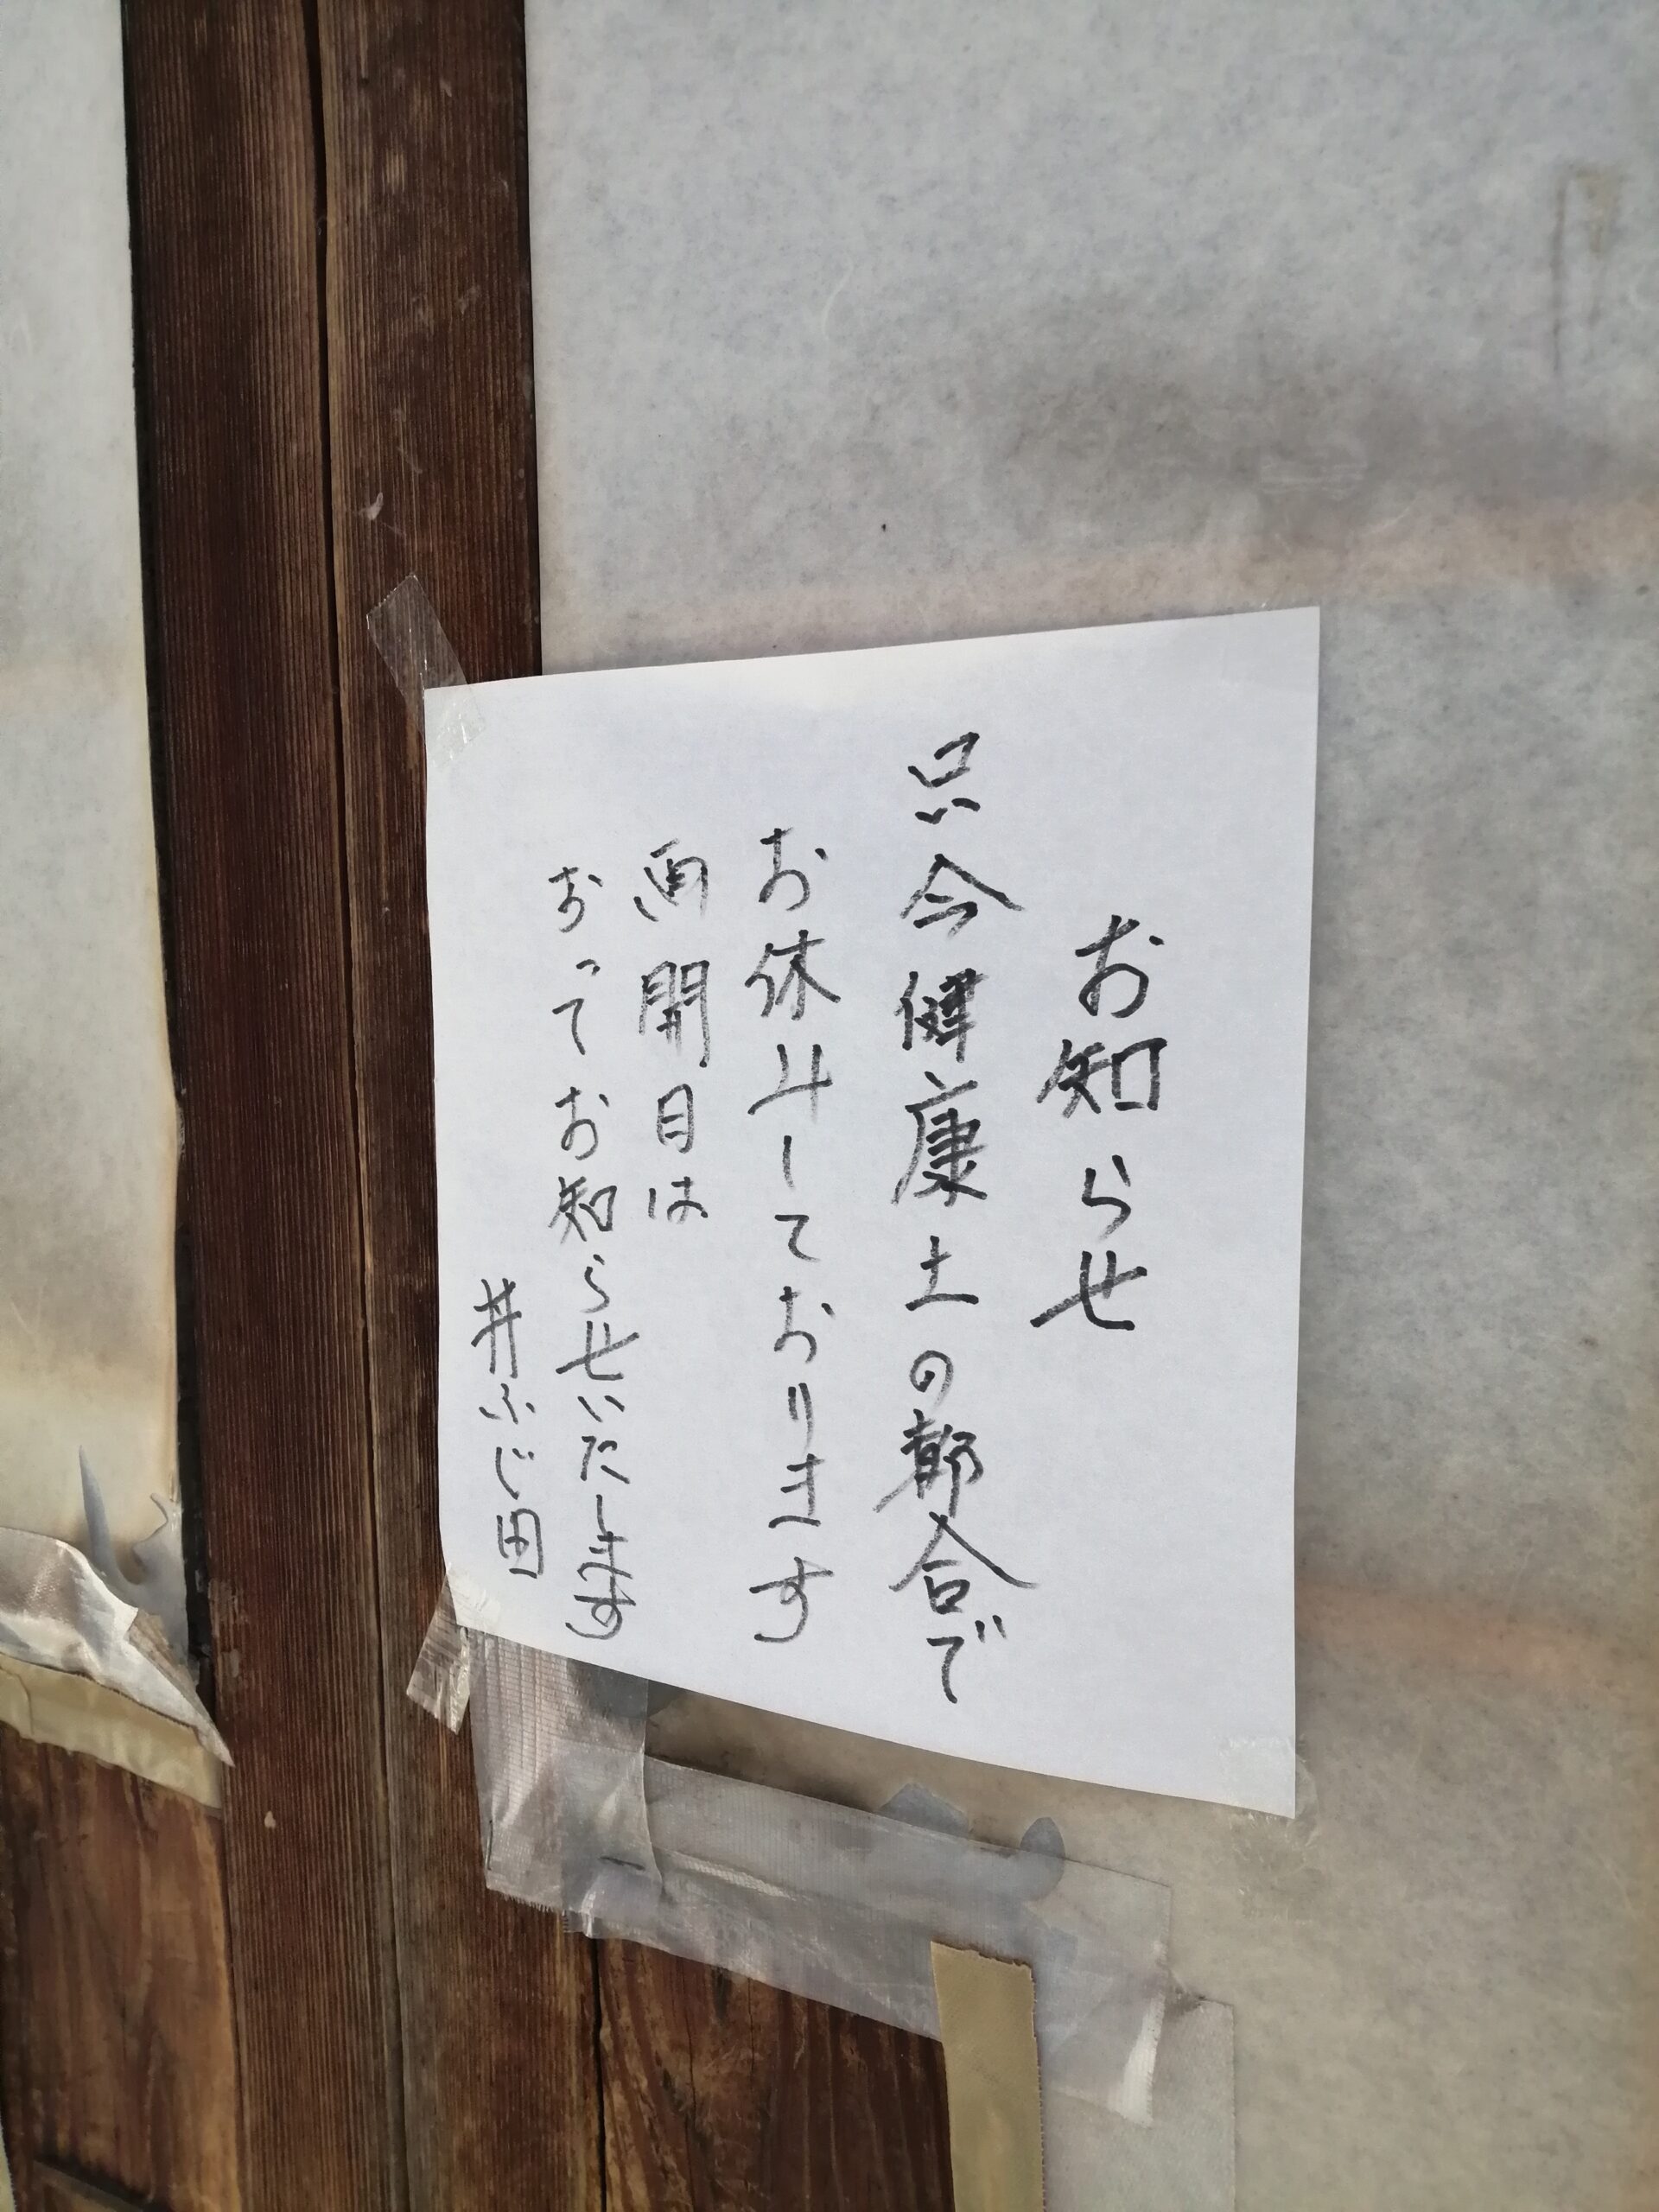 お知らせ
只今健康上の都合で
お休みしております
再開日は
おってお知らせいたします
井ふじ田